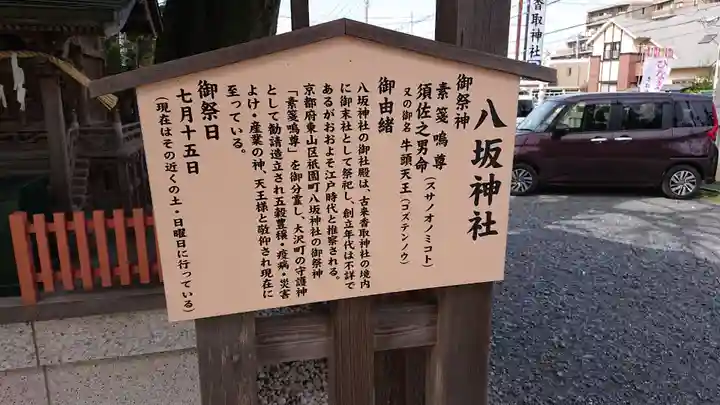 八坂神社
御祭神
素箋鳴尊
須佐之男命（スサノオノミコト）
又の御名 牛頭天王（ゴズテンノウ）
御由緒
八坂神社の御社殿は、古来香取神社の境内
に御末社として祭祀し、創立年代は不詳で
あるがおおよそ江戸時代と推察される。
京都府東山区祇園町八坂神社の御祭神
「素箋鳴尊」を御分霊し、大沢町の守護神
として勧請造立され五穀豊穣・疫病・災害
よけ・産業の神、天王様と敬仰され現在に
至っている。
御祭日
七月十五日
（現在はその近くの土・日曜日に行っている）
香取神社